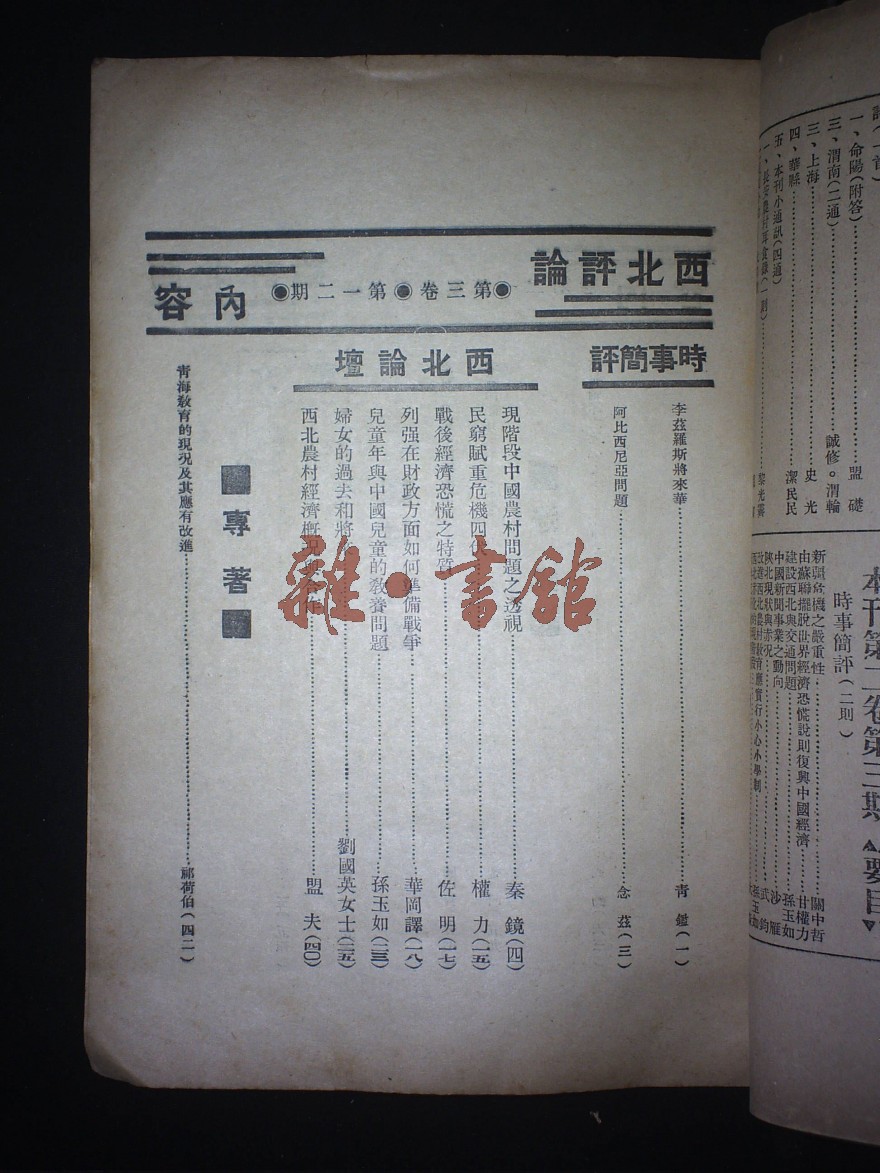 西北評論
●第三卷●第一二期●
內容
時事簡評
李茲羅斯將來華……青鑑(一)
阿比西尼亞問題……念茲(三)
西北論壇
現階段中國農村問題之透視……秦鏡(四)
民窮賦重危機四伏……權力(一五)
戰後經濟恐慌之特質……佐明(一七)
列强在財政方面如何準備戰爭……華岡譯(一八)
兒童年與中國兒童的教養問題……孫玉如(二三)
婦女的過去和將……劉國英女士(二五)
西北農村經濟概況……盟夫(四〇)
專著
青海教育的現況及其應有改進……祁荷伯(四二)
一、命陽(附答)……盟礎
二、渭南(二通)……誠修。渭輪
三、上海……史光
四、華縣……潔民民
五、本刊小通訊(四通)
本刊第二卷第三期要目
時事簡評(二則)
新疆危機之嚴重性……關中哲
由蘇聯擺脫世界經濟恐慌說則復興中國經濟……甘權力
建設西北與交通問題……孫玉如
中國新聞事業之動向……沙雁
陝北現狀與赤況……武鈞
雜·書館